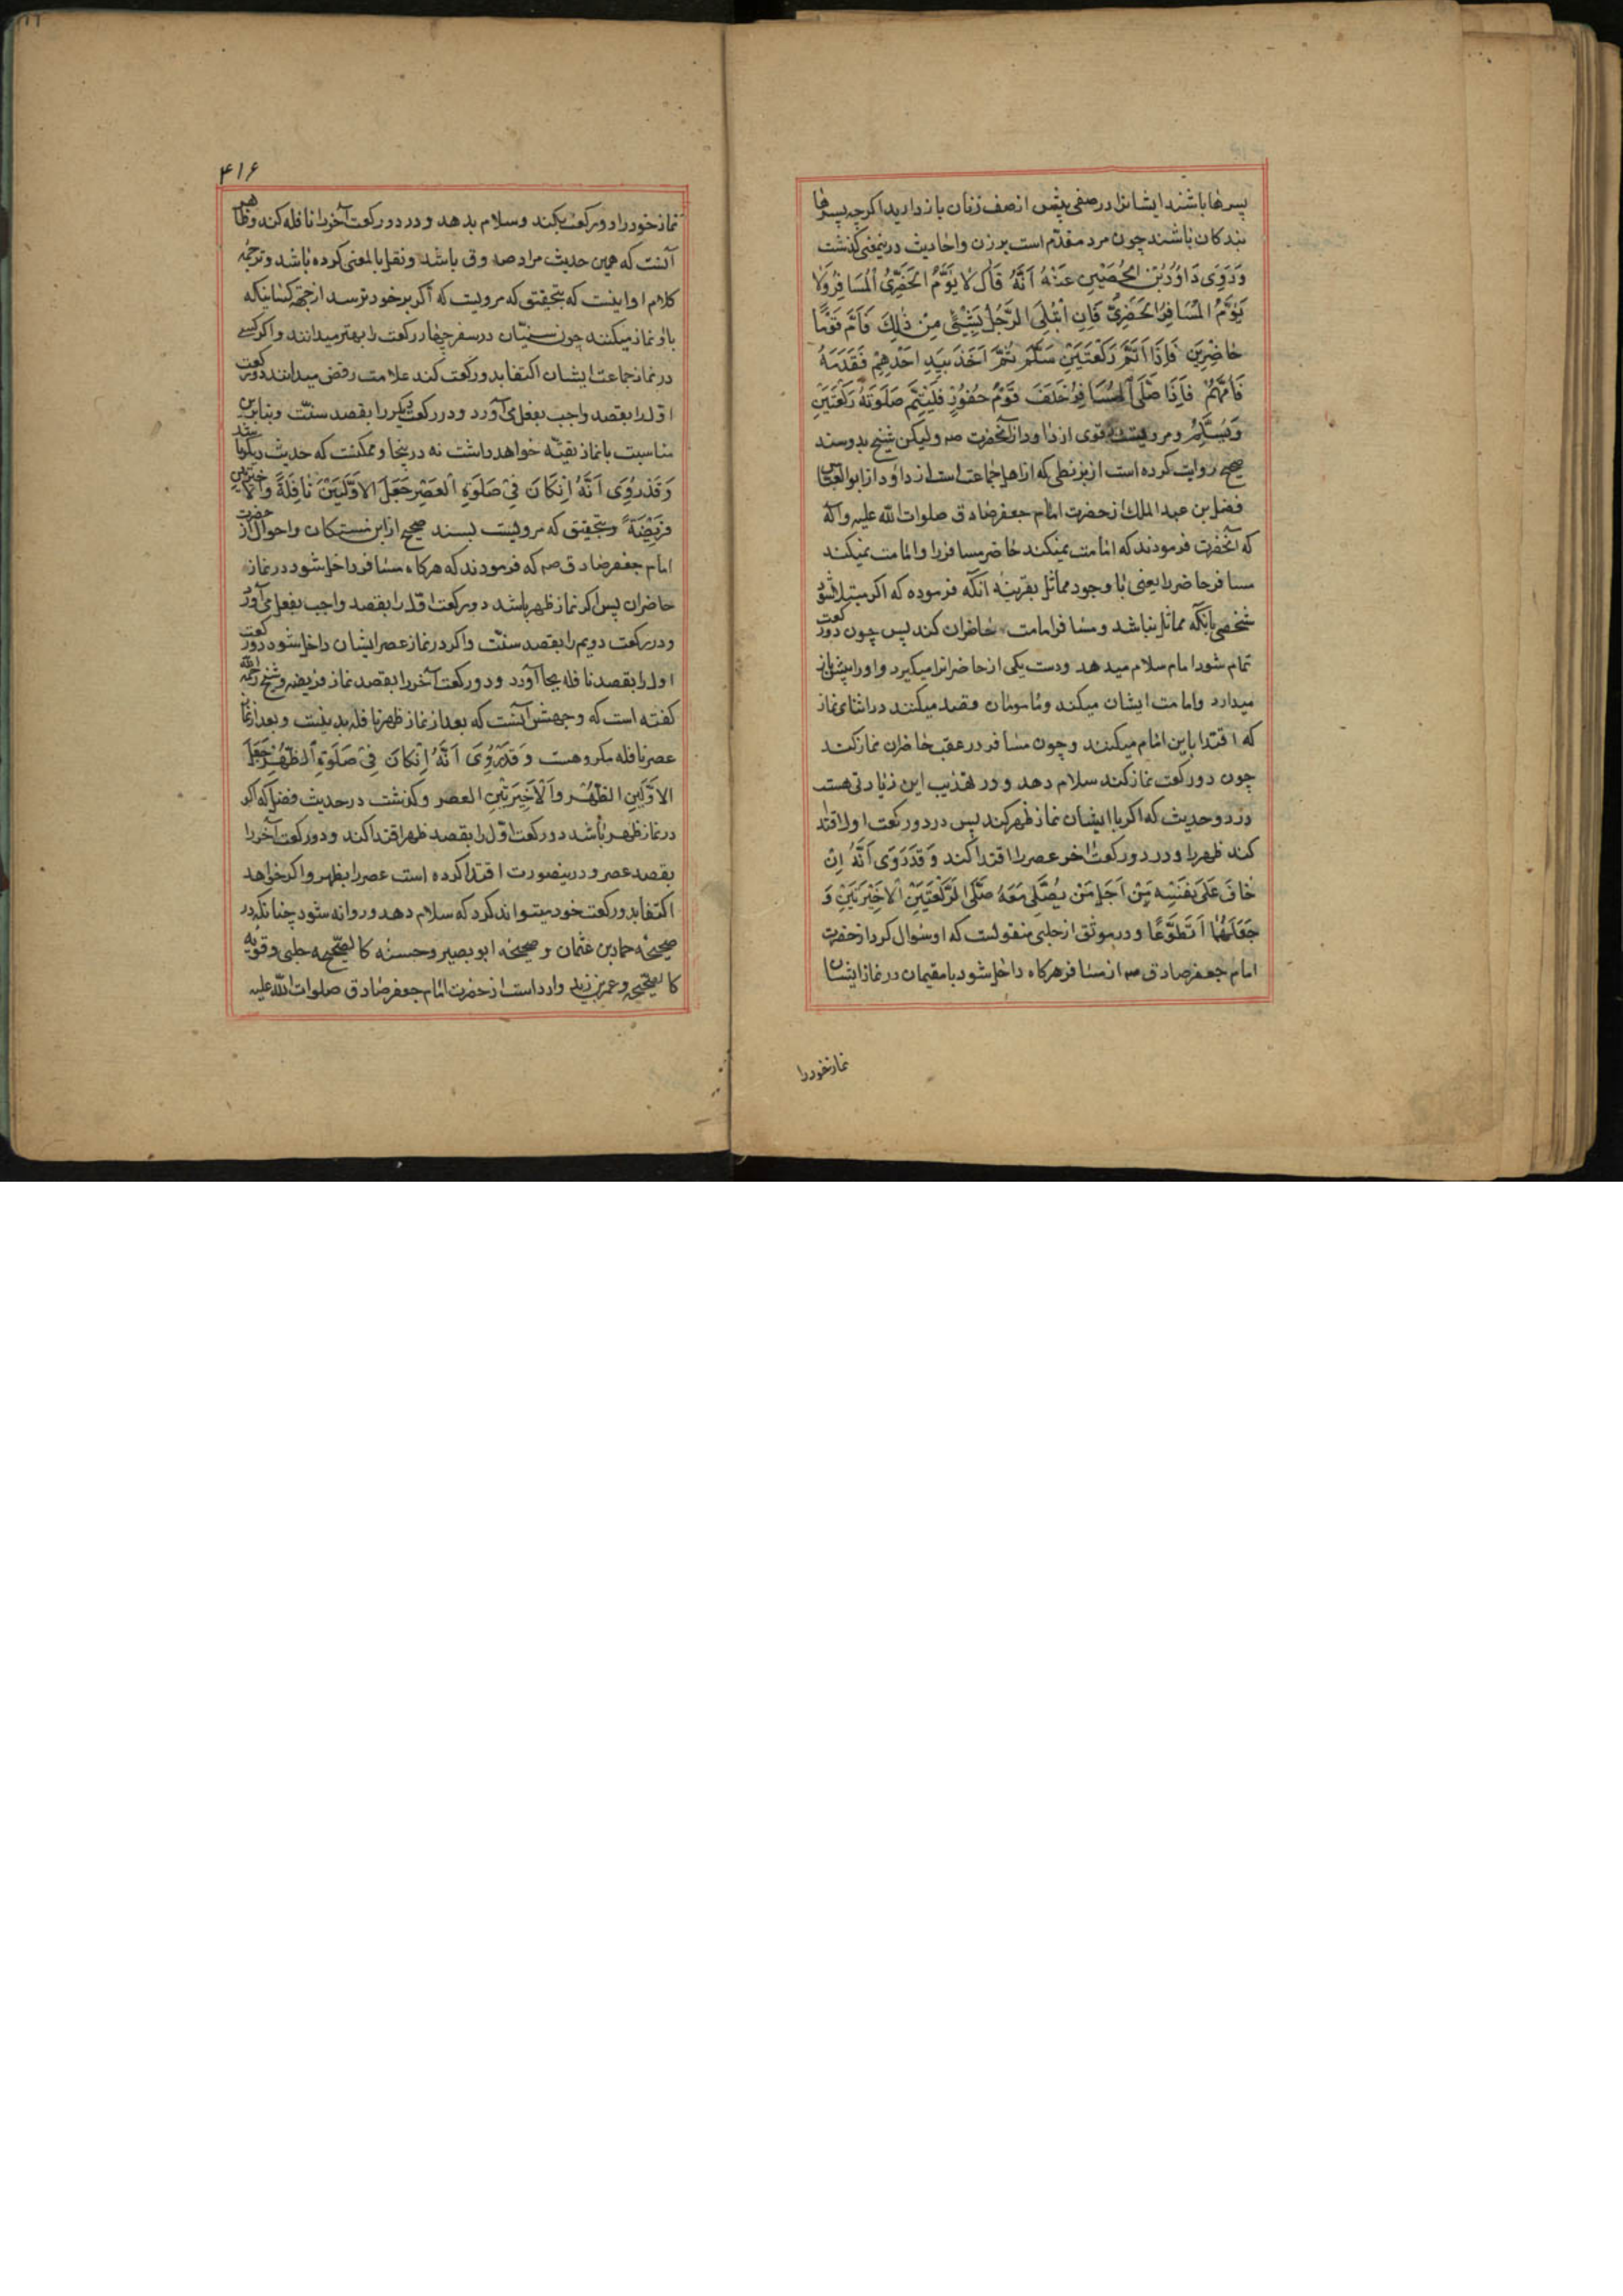 پسرها باشند ایشانرا در صفی پیش از صف زنان باز دارید اکرچه پسرها
بندکان باشند چون مرد مقدّم است بر زن و احادیث درینمعنی کذشت
وَرَوَی دَاوُدُ بْنُ الحُصَیْنِ عَنْهُ اَنَّهُ قَالَ لَا یَؤُمُّ الْحَضَرِیُّ الْمُسَافِرَ وَلَا
یَؤُمُّ الْمُسَافِرُ الْحَضَرِیَّ فَاِنِ ابْتُلِیَ الرَّجُلُ بِشَیْئٍ مِنْ ذٰلِکَ فَاَمَّ قَوْمًا
حَاضِرِینَ فَاِذَا اَتَمَّ رَکْعَتَیْنِ سَلَّمَ ثُمَّ اَخَذَ بِیَدِ اَحَدِهِمْ فَقَدَّمَهُ
فَاَمَّهُمْ فَاِذَا صَلَّی الْمُسَافِرُ خَلْفَ قَوْمٍ حُضُورٍ فَلْیُتِمَّ صَلٰوتَهُ رَکْعَتَیْنِ
وَیُسَلِّمُ و مرویست قوی از داود از آنحضرت صه ولیکن شیخ بدو سند
صحیح روایت کرده است از بزنطی که از اهل اجماعست از داود از ابوالعباس
فضل بن عبد الملک از حضرت امام جعفر صادق صلوات الله علیه وآله
که آنحضرت فرمودند که امامت نمیکند حاضر مسافر را و امامت نمیکند
مسافر حاضر را یعنی با وجود مماثل بقرینه آنکه فرموده که اکر مبتلا شود
شخصی بآنکه مماثل نباشد و مسافر امامت حاضران کند پس چون دو رکعت
تمام شود امام سلام میدهد و دست یکی از حاضرانرا میکیرد و او را پیش باز
میدارد و امامت ایشان میکند و مامومان قصد میکنند در اثنای نماز
که اقتدا باین امام میکنند و چون مسافر در عقب حاضران نماز کند
چون دو رکعت نماز کند سلام دهد و در تهذیب این زیادتی هست
در دو حدیث که اکر با ایشان نماز ظهر کند پس در دو رکعت اول اقتدا
کند ظهر را و در دو رکعت اخر عصر را اقتدا کند وَقَدْ رُوِیَ اَنَّهُ اِنْ
خَافَ عَلَی نَفْسِهِ مِنْ اَجَلِ مَنْ یُصَلِّی مَعَهُ صَلَّی الرَّکْعَتَیْنِ الْاَخِیْرَتَیْنِ وَ
جَعَلَهُمَا تَطَوُّعًا و در موثق از حلبی منقولست که او سؤال کرد از حضرت
امام جعفر صادق صه از مسافر هرکاه داخل شود با مقیمان در نماز ایشان
نماز خود را
۴۱۶
نماز خود را دو رکعت بکند و سلام بدهد و در دو رکعت آخر را نافله کند و ظاهر
آنست که همین حدیث مراد صدوق باشد و نقل بالمعنی کرده باشد و ترجمه
کلام او اینست که بتحقیق که مرویست که اکر بر خود ترسد از جهة کسانیکه
با او نماز میکنند چون سنیّان در سفر چهار رکعت را بهتر میدانند و اکر کسی
در نماز جماعت ایشان اکتفا بدو رکعت کند علامت رفض میدانند دو رکعت
اول را بقصد واجب بفعل می آورد و در رکعت دیکر را بقصد سنّت و بنابراین
مناسبت با نماز تقیّه خواهد داشت نه در اینجا و ممکنست که حدیث دیکر باشد
وَقَدْ رُوِیَ اَنَّهُ اِنْ کَانَ فِیْ صَلٰوةِ الْعَصْرِ جَعَلَ الْاَوَّلَیَیْنَ نَافِلَةً وَالْاَخِیرَتَیْنِ
فَرِیْضَةً و بتحقیق که مرویست بسند صحیح از ابن مسکان و احوال از حضرت
امام جعفر صادق صه که فرمودند که هرکاه مسافر داخل شود در نماز
حاضران پس اکر نماز ظهر باشد دو رکعت اول را بقصد واجب بفعل می آورد
و در رکعت دویم را بقصد سنّت و اکر در نماز عصر ایشان داخل شود دو رکعت
اول را بقصد نافله بجا آورد و دو رکعت آخر را بقصد نماز فریضه و شیخ رحمه الله
کفته است که وجهش آنست که بعد از نماز ظهر نافله بد نیست و بعد از نماز
عصر نافله مکروهست وَقَدْ رُوِیَ اَنَّهُ اِنْ کَانَ فِیْ صَلٰوةِ الظُّهْرِ جَعَلَ
الْاَوَّلَیَیْنِ الظُّهْرَ وَالْاَخِیْرَتَیْنِ العصر و کذشت در حدیث فضل که اکر
در نماز ظهر باشد دو رکعت اوّل را بقصد ظهر اقتدا کند و دو رکعت آخر را
بقصد عصر و درینصورت اقتدا کرده است عصر را بظهر و اکر خواهد
اکتفا بدو رکعت خود میتواند کرد که سلام دهد و روانه شود چنانکه در
صحیحه حماد بن عثمان و صحیحه ابو بصیر و حسنه کالصحیحه حلبی و قویه
کالصحیح و عمر بن یزید وارد است از حضرت امام جعفر صادق صلوات الله علیه